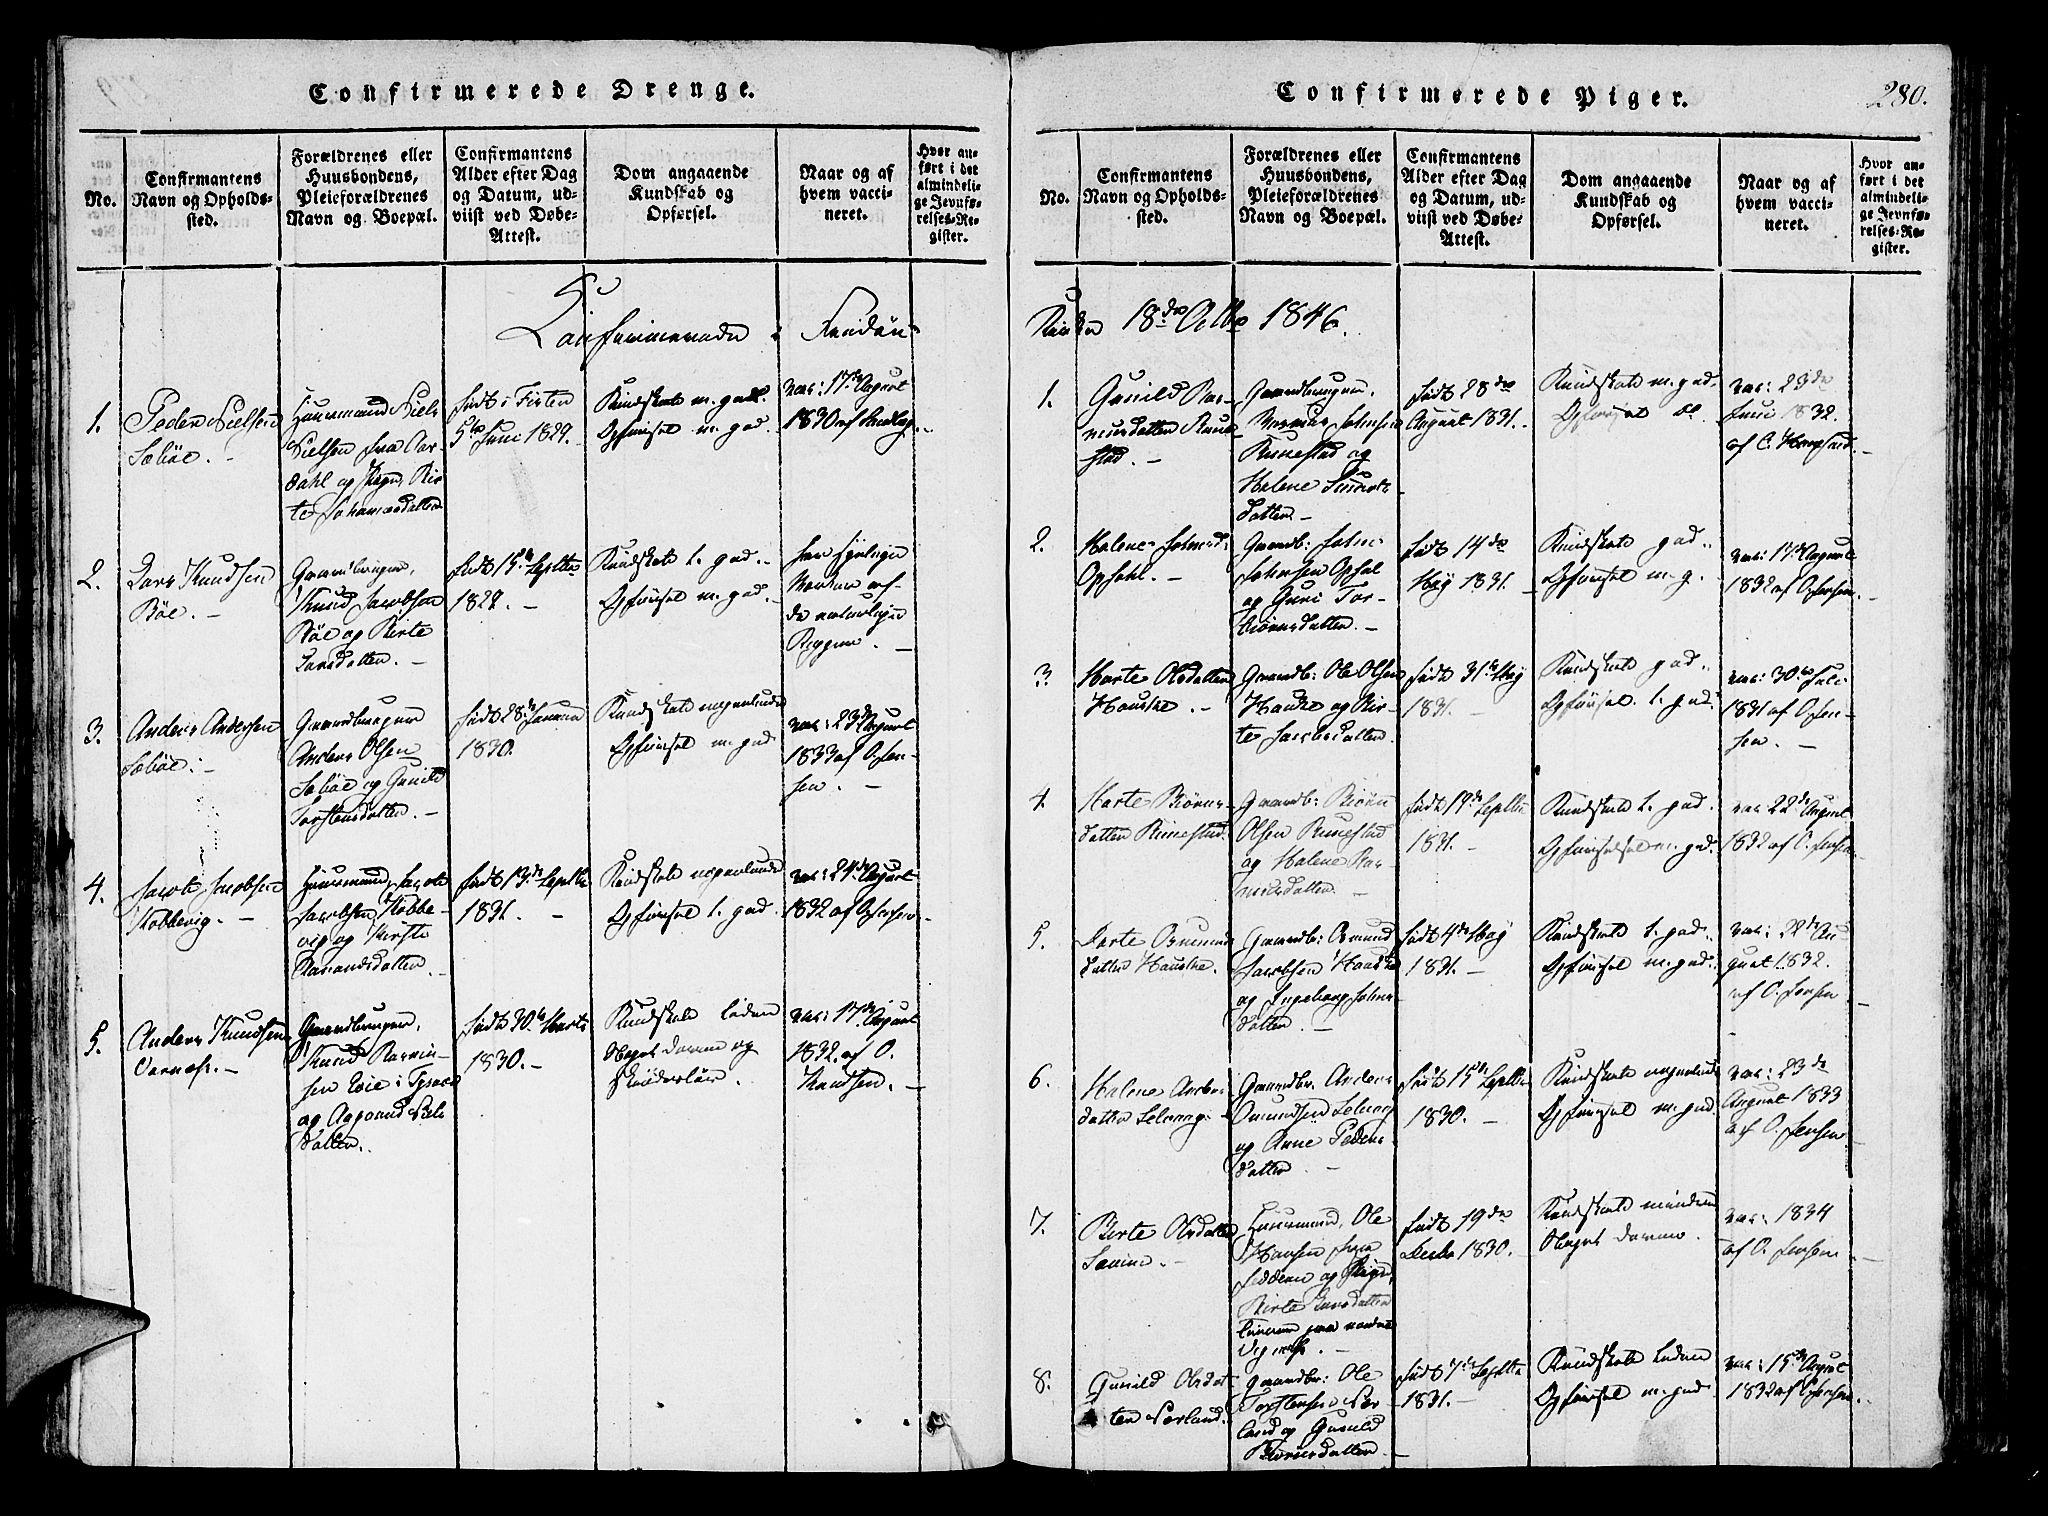 Confirmerede Drenge.
No.
Confirmantens
Navn og Opholds-
sted.
Forældrenes eller
Huusbondens,
Pleieforældrenes
Navn og Boepæl.
Confirmantens
Alder efter Dag
og Datum, ud-
viist ved Døbe-
Attest.
Dom angaaende
Kundskab og
Opførsel.
Naar og af
hvem vacci-
neret.
Hvor an-
ført i det
almindeli-
ge Jevnfø-
relses-Re-
gister.
Confirmerede i
1.
Peder Nielsen
Sæbøe. -
Huusmand Niels
Nielsen fra
dahl og Bir-
te Johannesdatter
født i
5te Juni 1829.
Kundskab m. god.
Opførsel m. god.
vac: 17de August
1830 af
2.
Lars Knudsen
Bøe. -
Gaardbruger,
Knud Jacobsen
Bøe og Birte
Larsdatter. -
født 15de Septbr
1829. -
Kundskab t. god. -
Opførsel m. god. -
har synlige
Mærker af
de naturlige
Kopper. -
3.
Anders Andersen
Sæbøe. -
Gaardbruger
Anders Olsen
Sæbøe og Gunild
Torstensdatter. -
født 28de Januar
1830.
Kundskab maadelig
Opførsel m. god
vac: 23de August
1833 af O Jen-
sen. -
4.
Jacob Jacobsen
Kobbevig. -
Huusmand, Jacob
Jacobsen Kobbe-
vig og Kirsti
Rasmusdatter. -
født 13de Septbr
1831. -
Kundskab maadelig
Opførsel t. god.
vac: 24de August
1832 af O Jensen. -
5.
Anders Knudsen
Gaardbruger,
Knud
sen Eie i Tysvær
og Niels
datter. -
født 30te Marts
1830. -
Kundskab liden
Noget doven og
skjødesløs.
vac: 17de August
1832. af O.
Knudsen. -
Confirmerede Piger.
280.
No.
Confirmantens
Navn og Opholds-
sted.
Forældrenes eller
Huusbondens,
Pleieforældrenes
Navn og Boepæl.
Confirmantens
Alder efter Dag
og Datum, ud-
viist ved Døbe-
Attest.
Dom angaaende
Kundskab og
Opførsel.
Naar og af
hvem vacci-
neret.
Hvor an-
ført i det
almindeli-
ge Jevnfø-
relses-Re-
gister.
Kirke 18de Octbr 1846.
1.
Gunild Ras-
musdatter Rune-
stad. -
Gaardbruger,
Rasmus Johnsen
Runestad og
Malene
datter. -
født 28de
August 1831. -
Kundskab m. god.
Opførsel
vac: 23de
Juni 1832.
af C.
2.
Malene Johnsd.
Opsahl. -
Gaardb: John
Johnsen Opsal
og Guri Tor-
biørnsdatter. -
født 14de
May 1831. -
Kundskab god. -
Opførsel m. g. -
vac: 17de August
1832 af O Jensen. -
3.
Marte Olsdatter
Hauske. -
Gaardb: Ole Olsen
Hauske og Bir-
te Jacobsdatter.
født 31te May
1831. -
Kundskab god. -
Opførsel. t. god. -
vac: 30te Juli
1831 af O Jen-
sen. -
4.
Marte Biørns-
datter Runestad.
Gaardb: Biørn
Olsen Runestad
og Malene Ras-
musdatter. -
født 19de Septbr
1831. -
Kundskab t. god.
Opførsel m. god.
vac 22de August
1832 af O. Jensen
5.
Dorte Osmunds
datter Hauske.
Gaardb: Osmund
Jacobsen Hauske
og Ingeborg Johns-
datter. -
født 4de May
1831. -
Kundskab t. god. -
Opførsel m. god. -
vac: 22de Au-
gust 1832.
af O. Jensen -
6.
Malene Anders-
datter -
Gaardbr. Anders
Osmundsen
og Anne Peders-
datter. -
født 15de Septbr
1830. -
Kundskab maadelig
Opførsel m. god
vac: 23de
August 1833
af O. Jensen
7.
Birte Olsdatter
Huusmand, Ole
Hansen fra
og
Birte Larsdatter
født 19de
Decbr 1830. -
Kundskab mindre
Noget doven. -
vac: 1834
af O. Jensen -
8.
Gunild Olsdat-
ter Nærland.
Gaardbr: Ole
Torstensen Nær-
land og Gunild
Biørnsdatter. -
født 7de Septbr
1831. -
Kundskab liden
Opførsel m. god
vac: 15de August
1832 af O Jensen. -